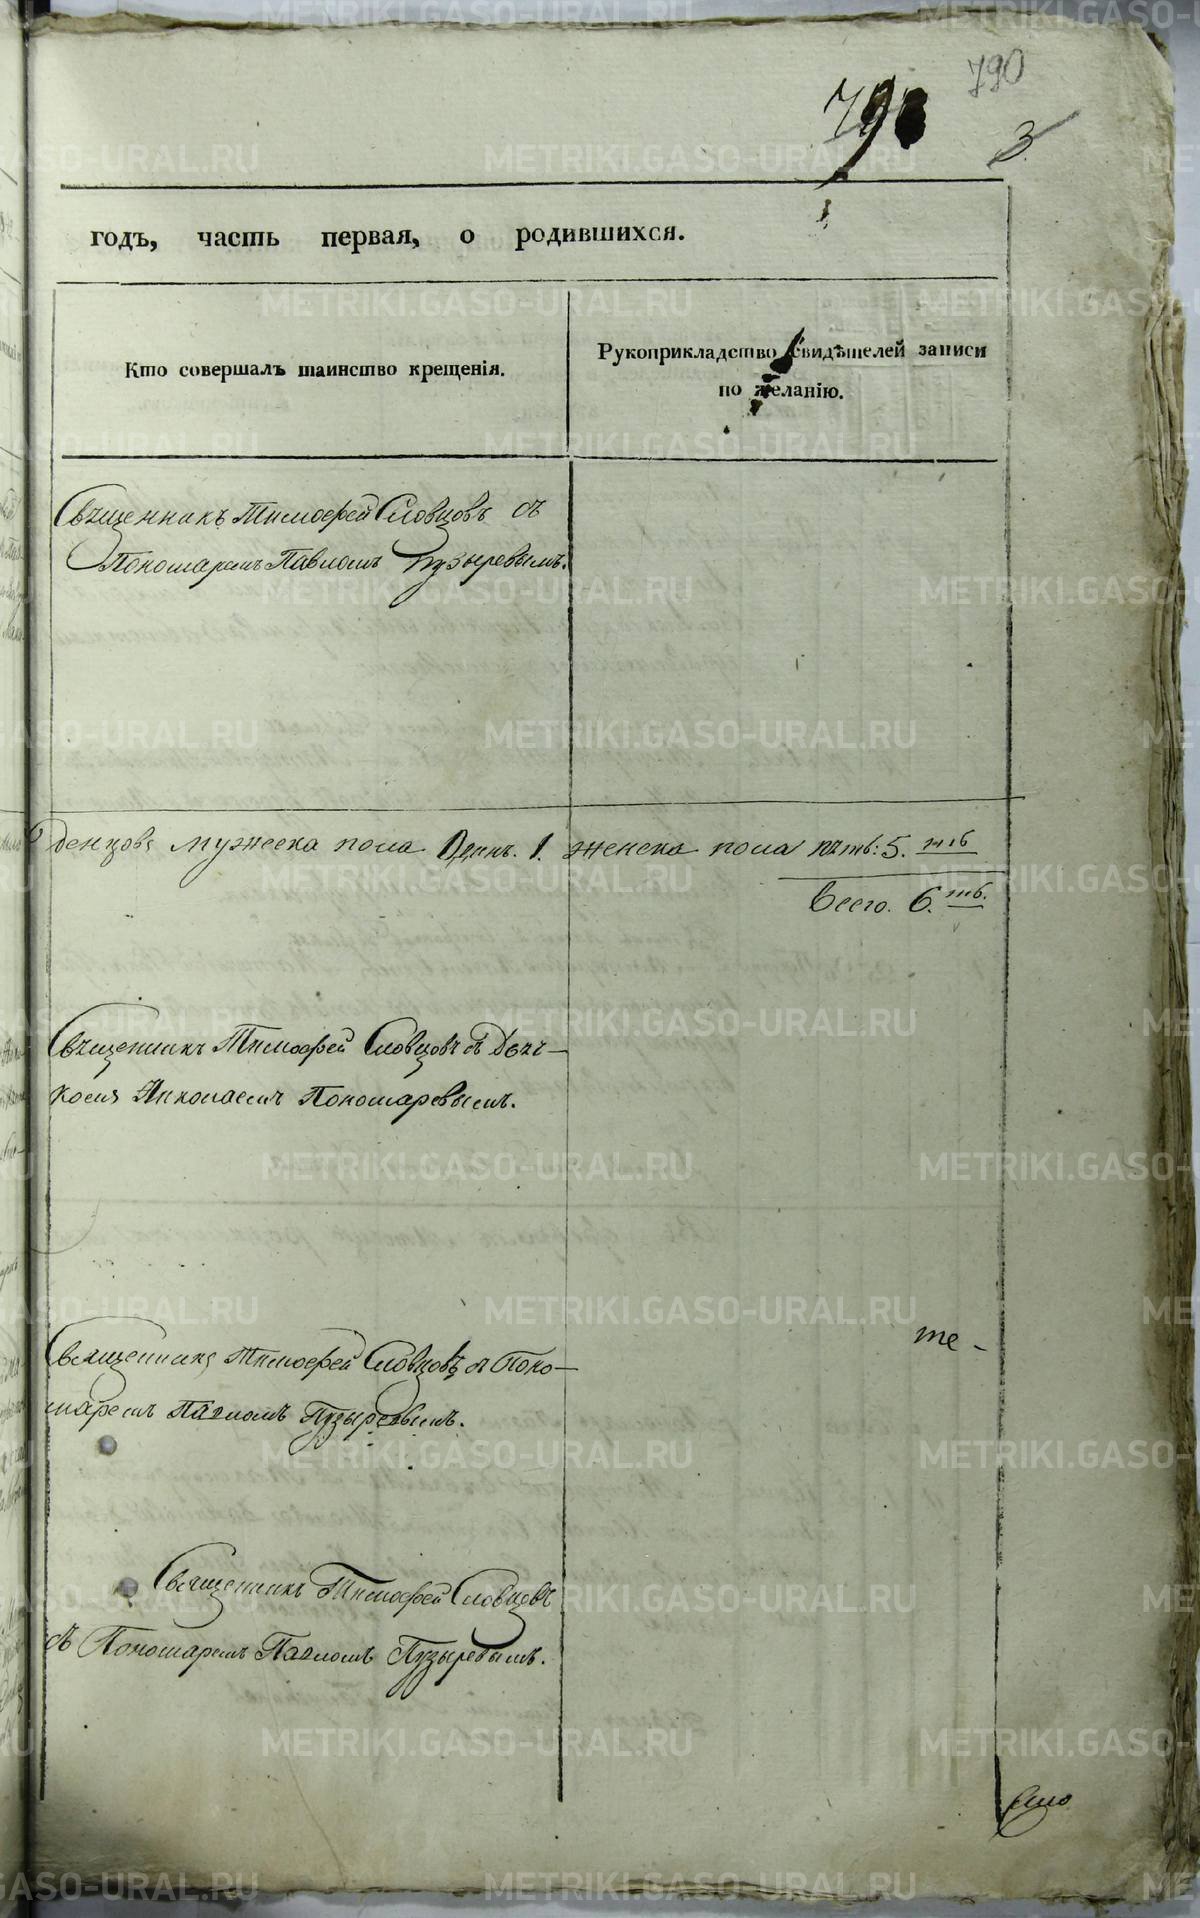 790
3.
годъ, часть первая, о родившихся.
Кто совершалъ таинство крещенія.
Рукоприкладство свидѣтелей записи
по желанію.
Свѣщенникъ Тимоѳей Словцовъ съ
Пономаремъ Павломъ Пузыревымъ.
денцовъ мужеска пола Одинъ. 1. женска пола пѣть: 5. ть
Всего. 6. ть.
Свѣщенникъ Тимоѳей Словцовъ съ Дьяч-
комъ Николаемъ Пономаревымъ.
Священникъ Тимоѳей Словцовъ съ Поно-
маремъ Павломъ Пузыревымъ.
те-
Священникъ Тимоѳей Словцовъ
съ Пономаремъ Павломъ Пузыревымъ.
METRIKI.GASO-URAL.RU